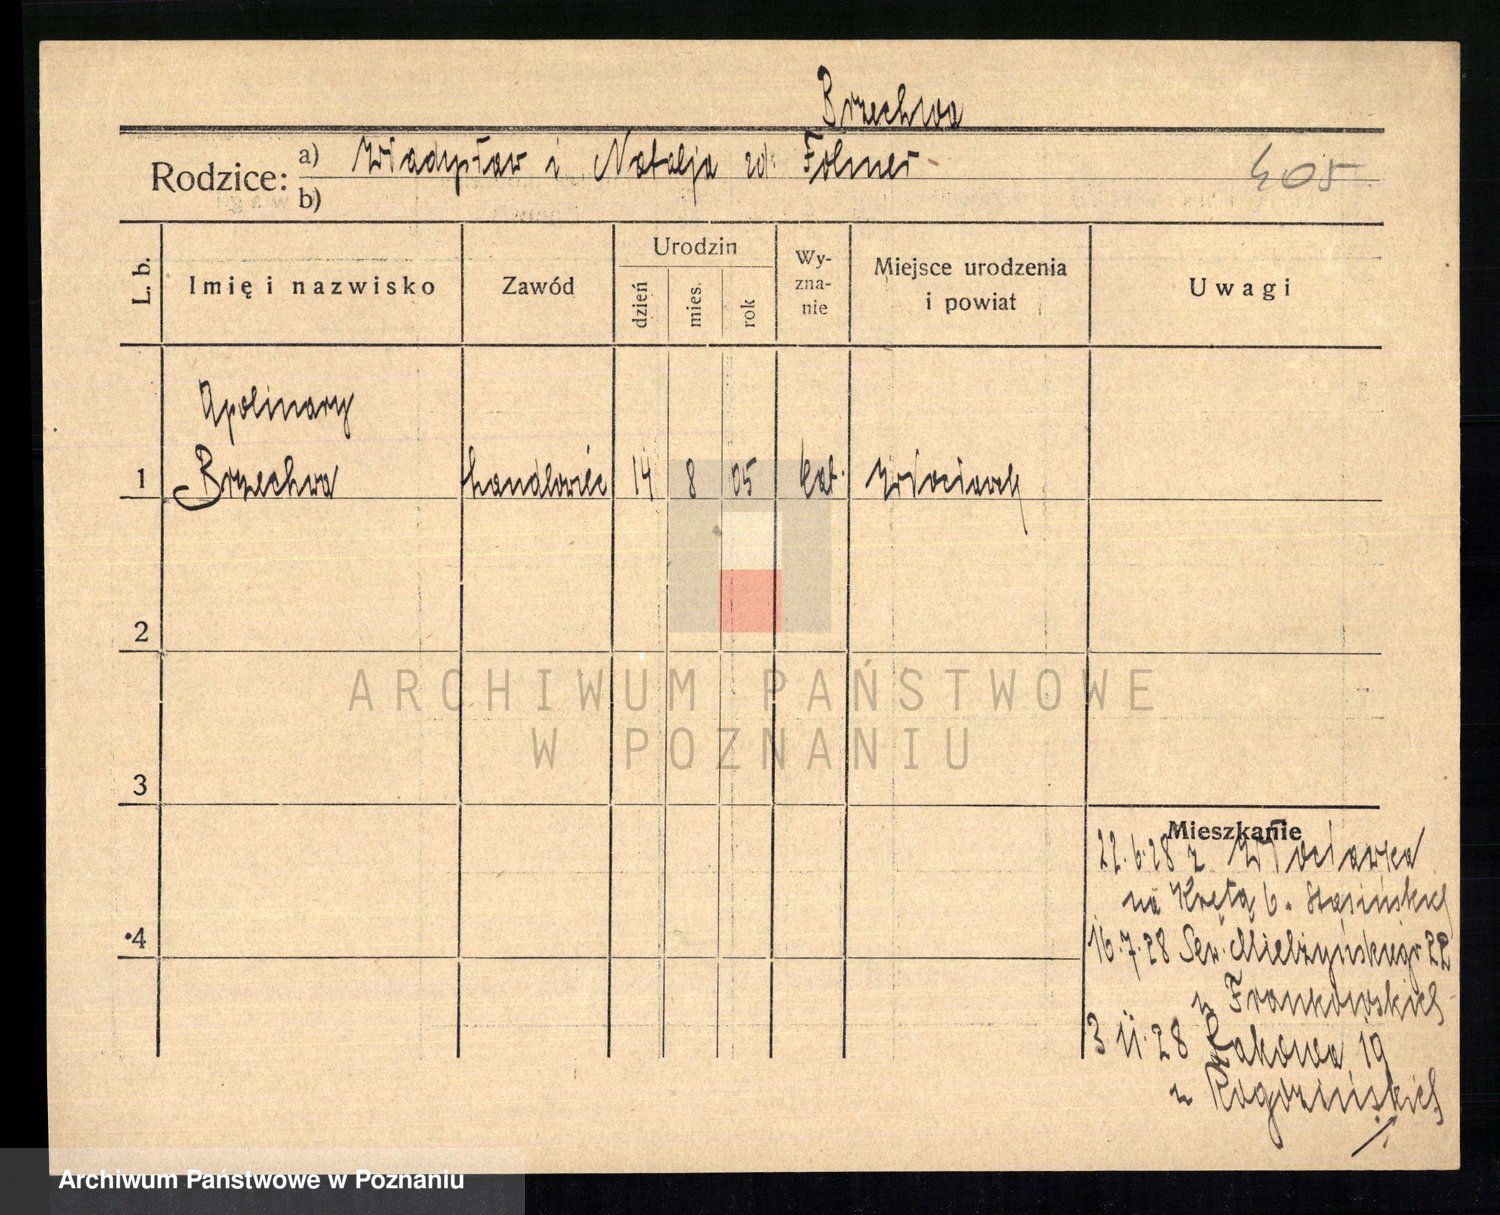 Brzechwa
Rodzice: a) Władysław i Natalja zd. Folmer
405
b)
L. b.
Imię i nazwisko
Zawód
Urodzin
dzień
mies.
rok
Wy-
zna-
nie
Miejsce urodzenia
i powiat
Uwagi
Apolinary
1 Brzechwa handlowiec 14 8 05 kat. Włocławek
2
ARCHIWUM PAŃSTWOWE
W POZNANIU
3
Mieszkanie
22.6.28 z Włocławka
na Krętą 6. Stasińskich
4
16.7.28 Sew. Mielżyńskiego 22
u Frankowskich
3 11.28 Łąkowa 19
u Rogozińskich
Archiwum Państwowe w Poznaniu